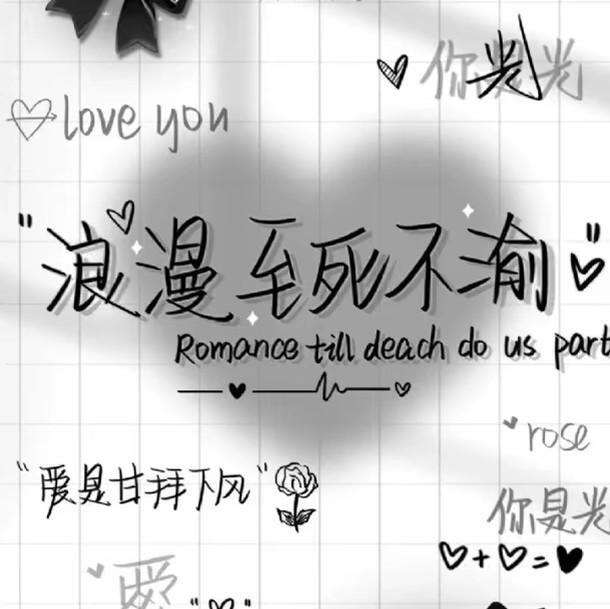 你是光
love you
"浪漫至死不渝"
Romance till deach do us part
rose
"爱是甘拜下风"
你是光
+ =
爱